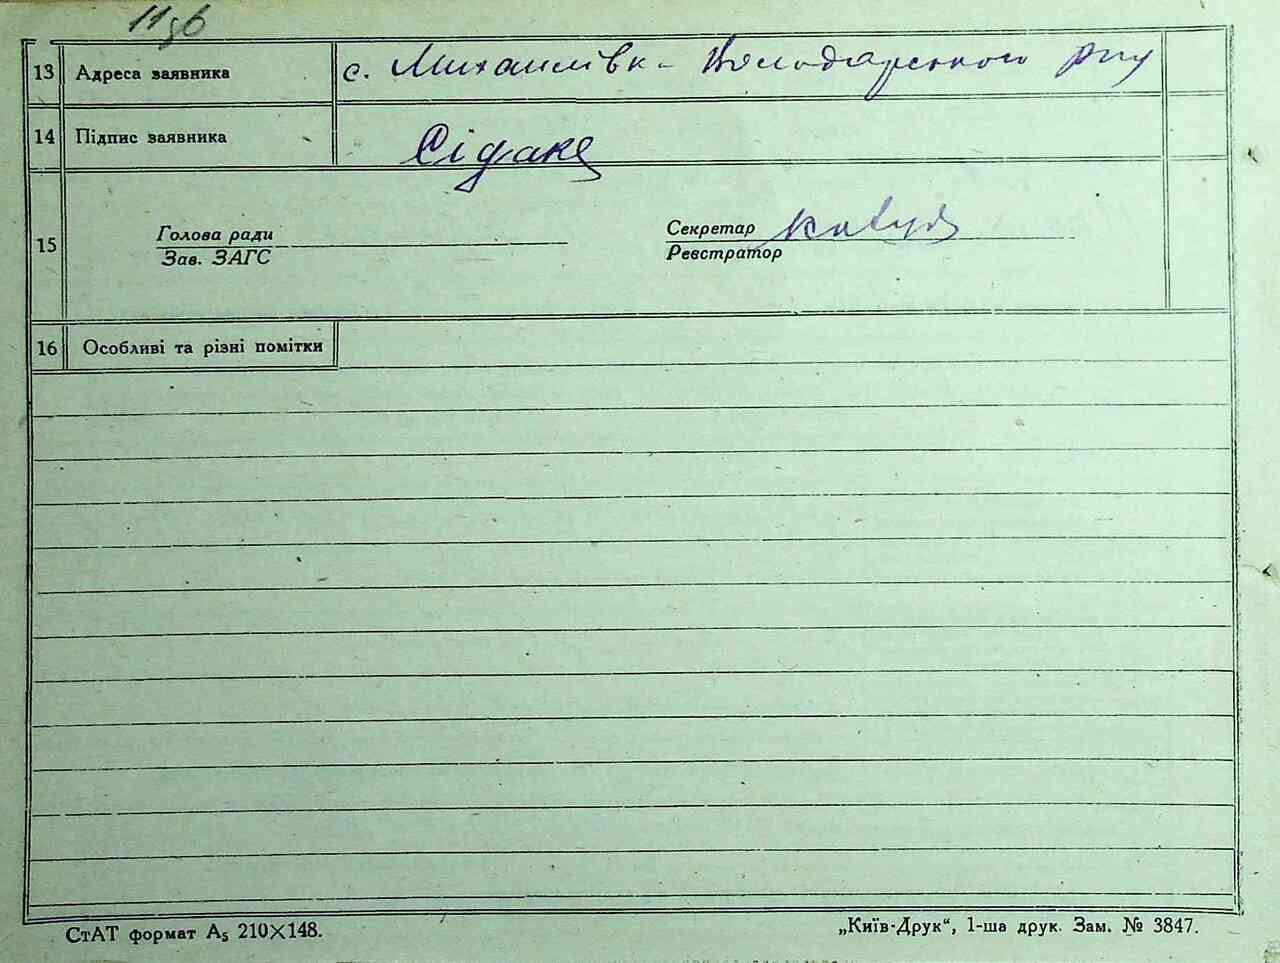 11зв
13 Адреса заявника с. Михайлівка Володарського р-ну
14 Підпис заявника Сідак
15 Голова ради Секретар
Зав. ЗАГС Реєстратор
16 Особливі та різні помітки
СтАТ формат А₅ 210×148.
„Київ-Друк“, 1-ша друк. Зам. № 3847.